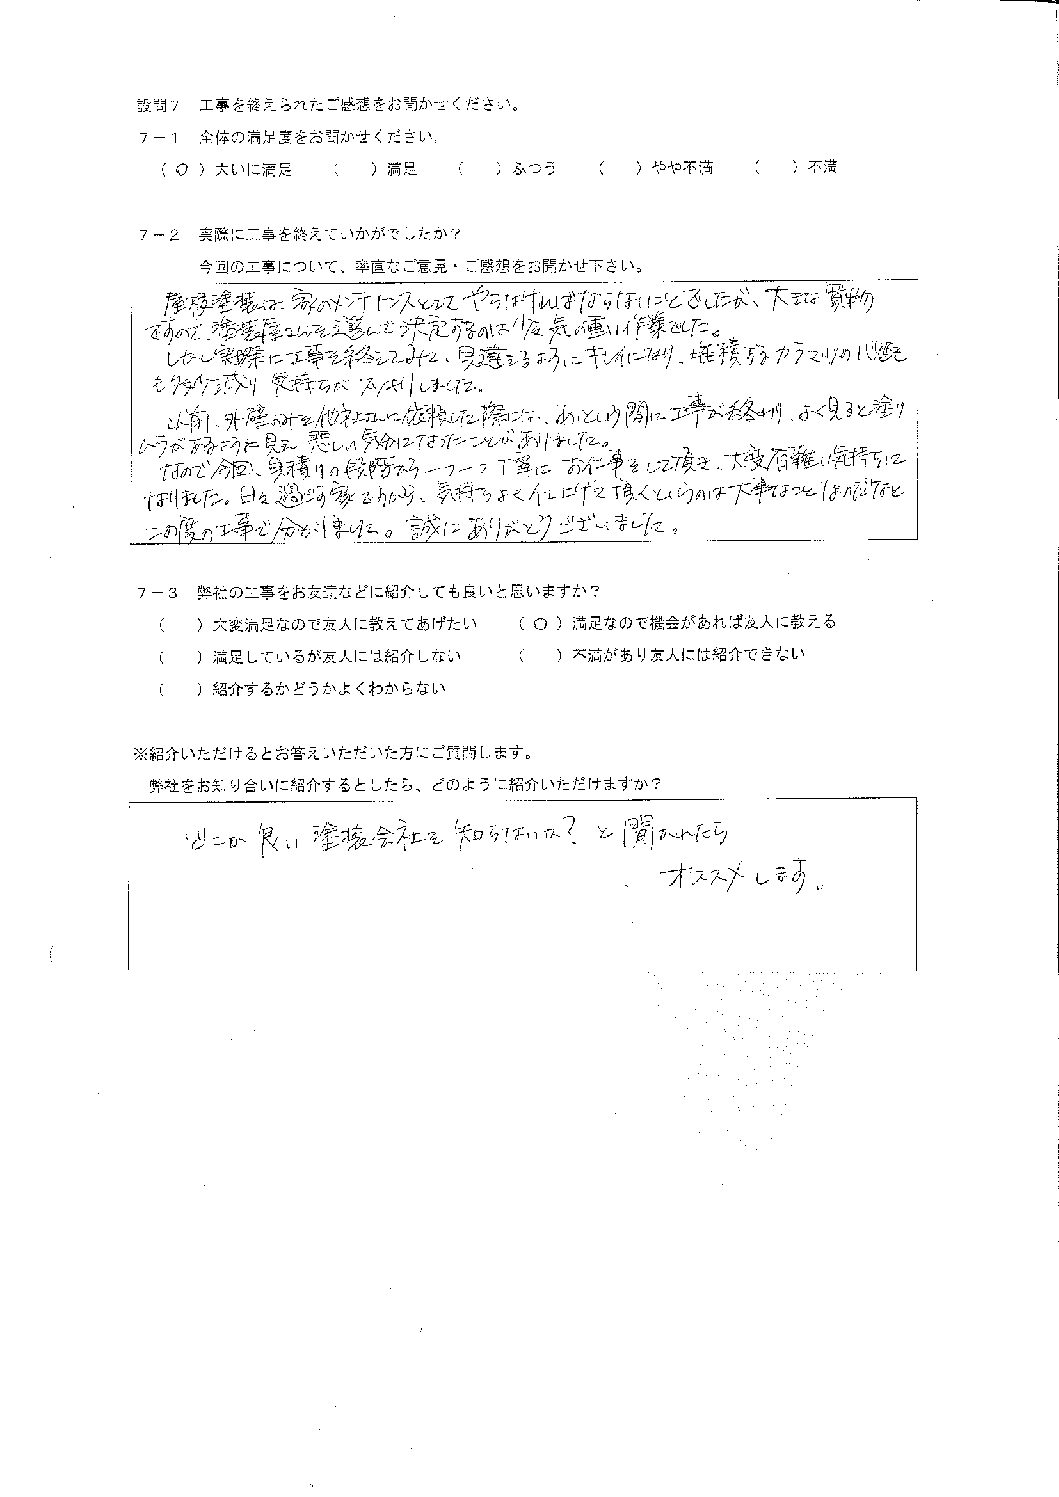 設問7 工事を終えられたご感想をお聞かせください。
7-1 全体の満足度をお聞かせください。
(O)大いに満足 ( )満足 ( )ふつう ( )やや不満 ( )不満
7-2 実際に工事を終えていかがでしたか?
今回の工事について、率直なご意見・ご感想をお聞かせ下さい。
屋根塗装は、家のメンテナンスとしてやらなければならないことでしたが、大きな買物
ですので、塗装屋さんを選んで決定するのは少々気の重い作業でした。
しかし実際に工事を終えてみて、見違えるようにキレイになり、堆積するカラマツの
気持ちが
以前、外壁のみを他社さんに依頼した際には、あっという間に工事が終わり、よく見ると塗り
ムラがあるように見え 悲しい気分になったことがありました。
なので今回、見積りの段階から一つ一つ丁寧にお仕事をして頂き、大変有難い気持ちに
なりました。日々過ごす家ですから、気持ちよく仕上げて頂くというのは大事なことなのだなと
この度の工事で分かりました。誠にありがとうございました。
7-3 弊社の工事をお友達などに紹介しても良いと思いますか?
( )大変満足なので友人に教えてあげたい (O)満足なので機会があれば友人に教える
( )満足しているが友人には紹介しない ( )不満があり友人には紹介できない
( )紹介するかどうかよくわからない
※紹介いただけるとお答えいただいた方にご質問します。
弊社をお知り合いに紹介するとしたら、どのように紹介いただけますか?
どこか良い塗装会社を知らないか?と聞かれたら
オススメします。